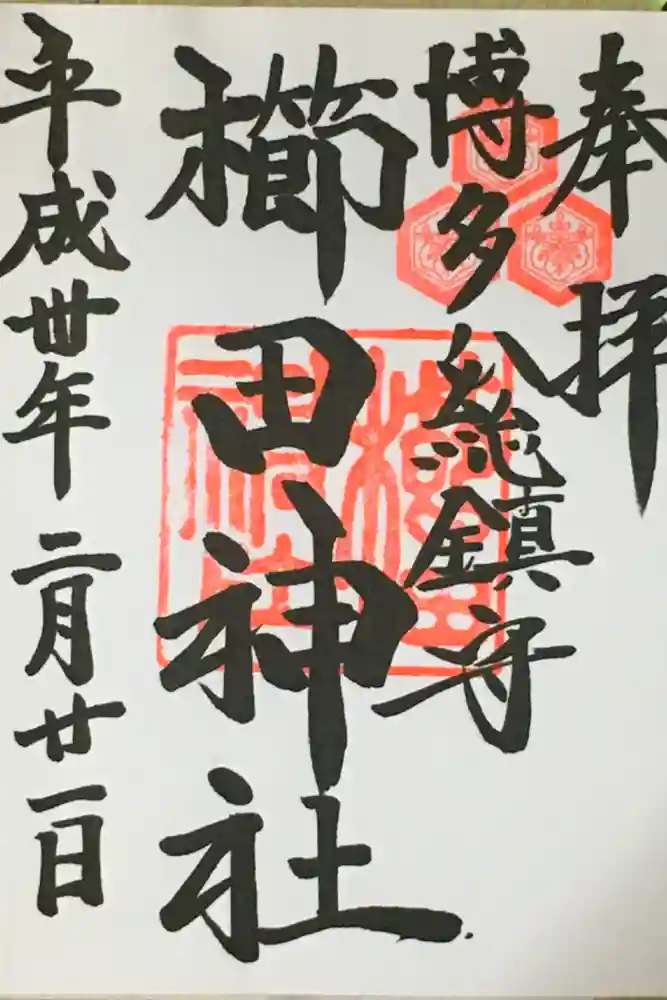 奉拝
博多総鎮守
櫛田神社
平成卅年二月廿一日
櫛田神社